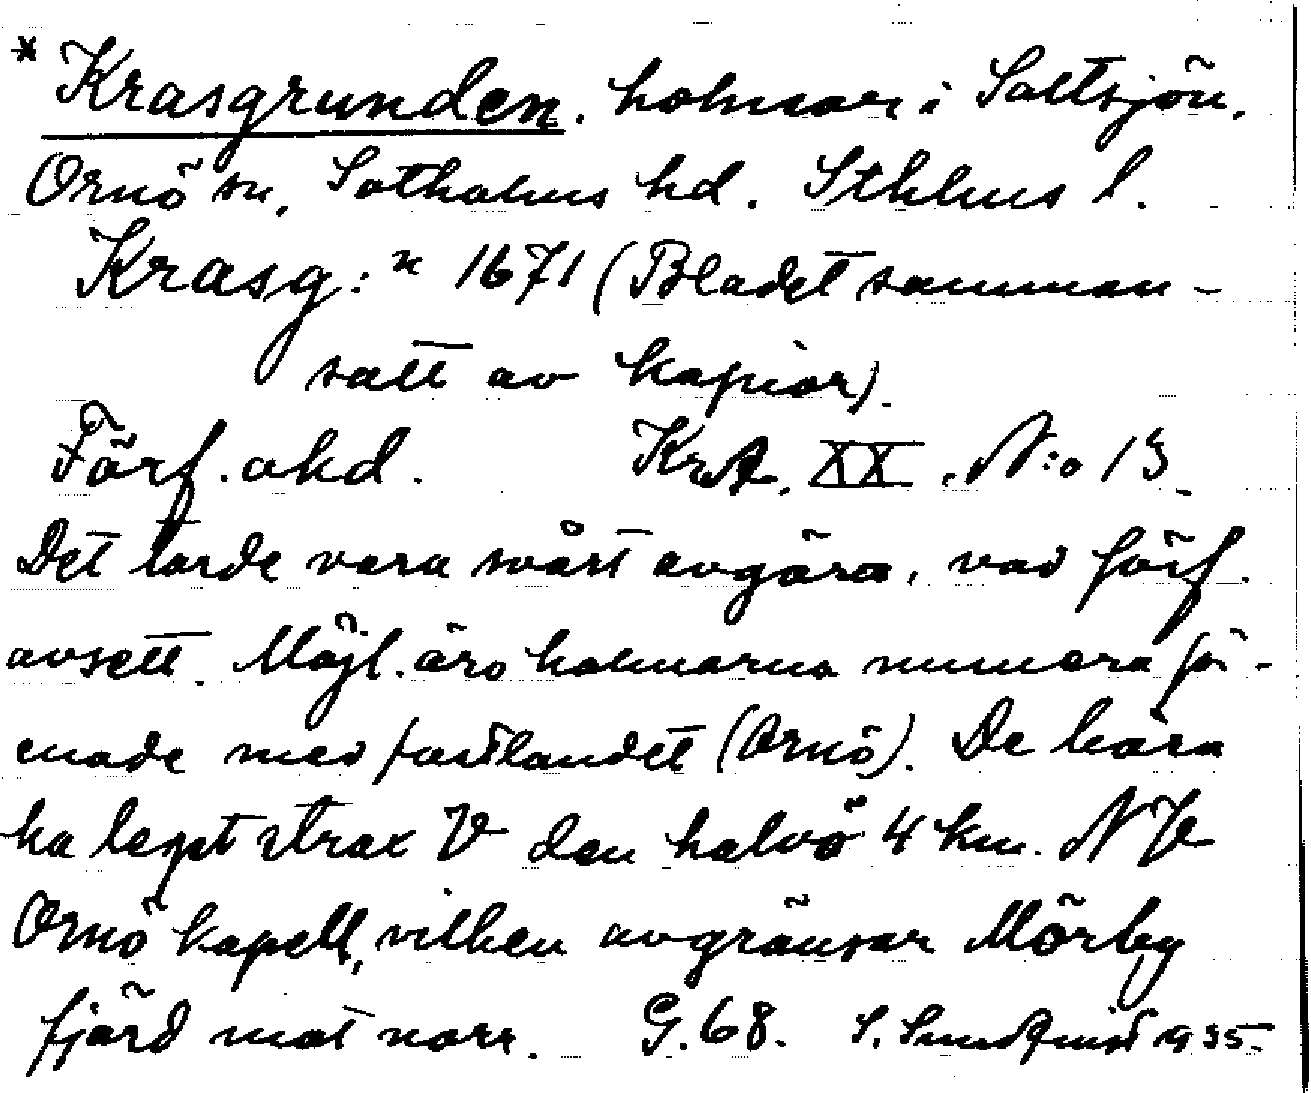 * Krasgrunden. holmar i Saltsjön.
Ornö sn, Sotholms hd. Sthlms l.
Krasg:n 1671 (Bladet samman-
satt av kopior).
Förf. okd. KrA. XX. N:o 13.
Det torde vara svårt avgöra, vad förf.
avsett. Möjl. äro holmarna numera fö-
enade med fastlandet (Ornö). De böra
ha legat strax V den halvö 4 km. NV
Ornö kapell, vilken avgränsar Mörby
fjärd mot norr. G.68. S. Sundqvist 1935.